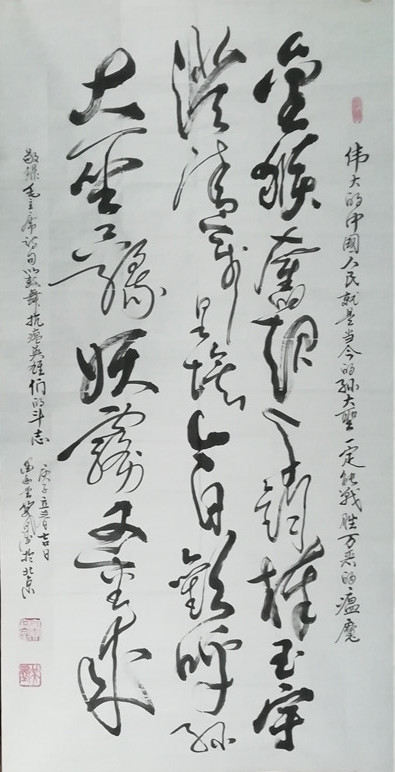 伟大的中國人民就是当今的孙大聖一定能戰胜万恶的瘟魔
金猴奮起千鈞棒玉宇
澄清萬里埃今日歡呼孙
大聖只緣妖霧又重来
敬録毛主席诗句以鼓舞抗疫英雄们的斗志
庚子立春吉日
於北京